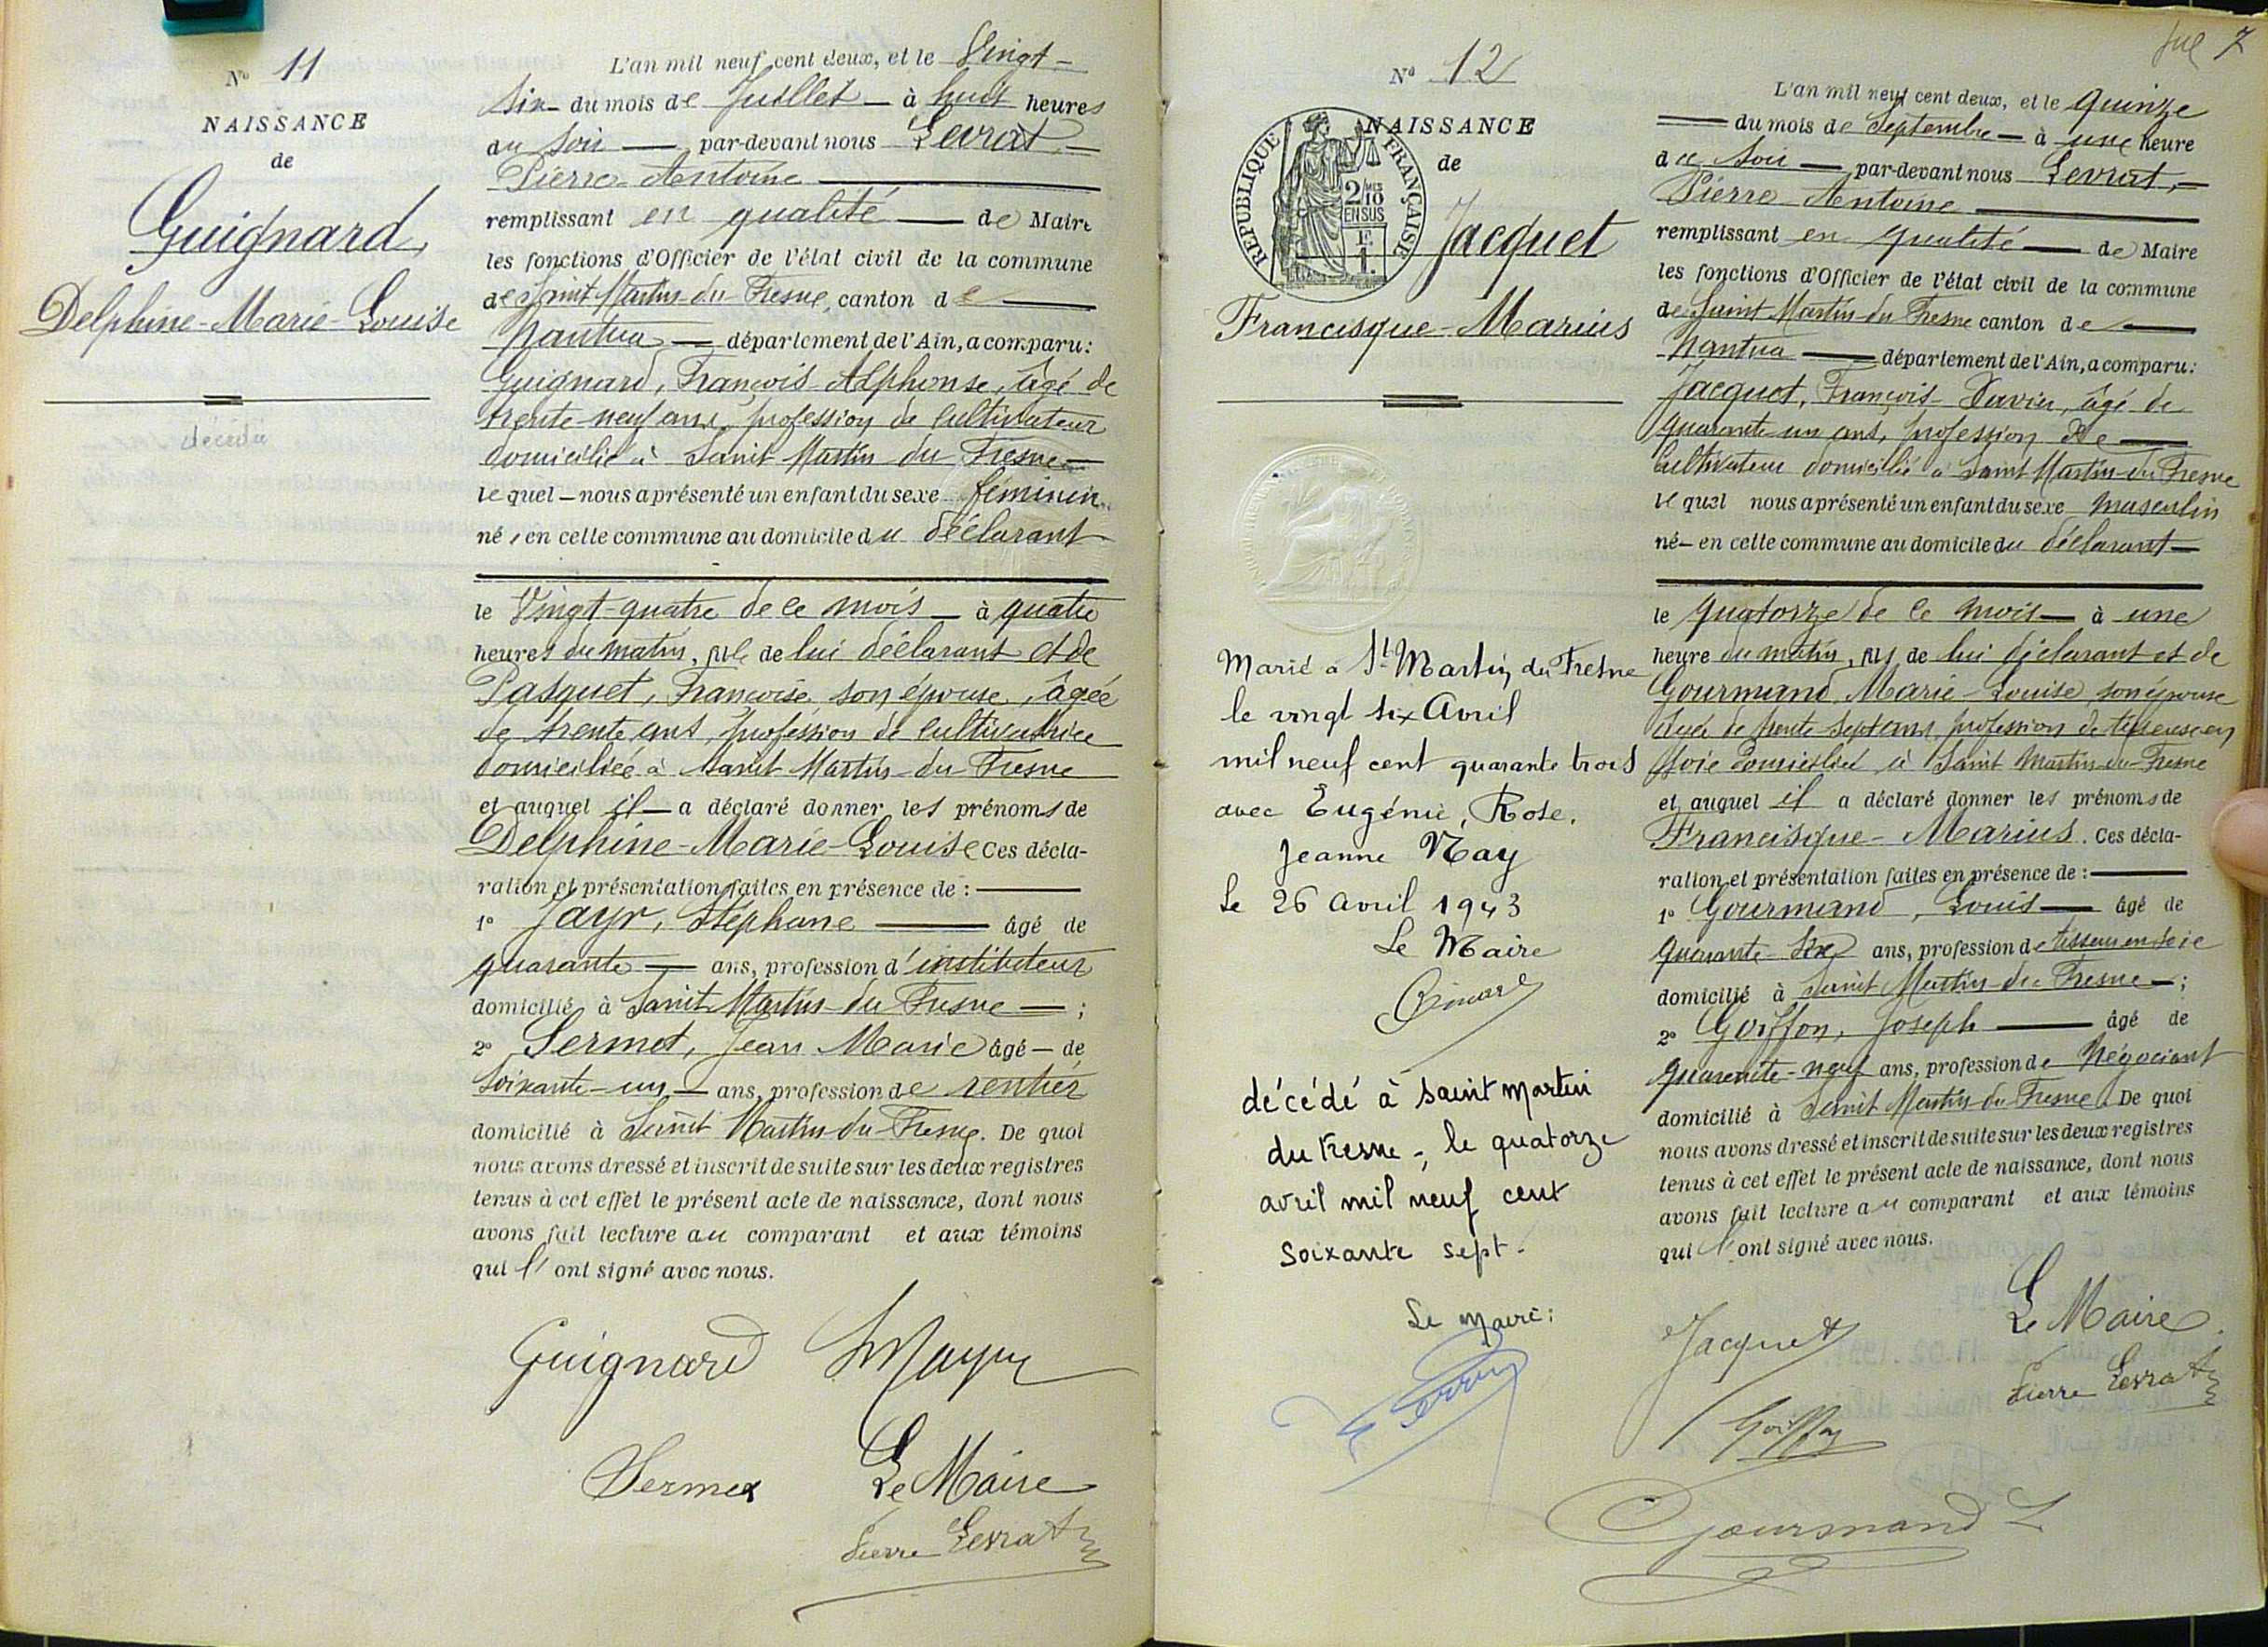 N° 11
NAISSANCE
de
Guignard,
Delphine-Marie-Louise
décédée
L'an mil neuf cent deux, et le Vingt-
six - du mois de Juillet - à huit heures
du soir - par-devant nous Levrat,
Pierre-Antoine
remplissant en qualité - de Maire
les fonctions d'Officier de l'état civil de la commune
de Saint Martin-du-Fresne, canton de
Nantua - département de l'Ain, a comparu:
Guignard, François-Alphonse, âgé de
trente-neuf ans, profession de cultivateur
domicilié à Saint Martin du Fresne
lequel - nous a présenté un enfant du sexe féminin
né, en cette commune au domicile du déclarant
le Vingt-quatre de ce mois - à quatre
heures du matin, fille de lui déclarant et de
Pasquet, Françoise son épouse, âgée
de trente ans, profession de cultivatrice
domiciliée à Saint Martin-du-Fresne
et auquel il - a déclaré donner les prénoms de
Delphine-Marie-Louise Ces décla-
ration et présentation faites en présence de :
1° Jayr, Stéphane - âgé de
quarante - ans, profession d'instituteur
domicilié à Saint Martin-du-Fresne - ;
2° Sermet, Jean Marie âgé - de
soixante-un - ans, profession de rentier
domicilié à Saint Martin-du-Fresne. De quoi
nous avons dressé et inscrit de suite sur les deux registres
tenus à cet effet le présent acte de naissance, dont nous
avons fait lecture au comparant et aux témoins
qui l'ont signé avec nous.
Guignard
Sermet Le Maire
Pierre Levrat
7
N° 12
NAISSANCE
de
REPUBLIQUE FRANÇAISE
2/10
EN SUS
F.
1.
Jacquet
Francisque-Marius
Marié à St Martin du Fresne
le vingt six Avril
mil neuf cent quarante trois
avec Eugénie, Rose,
Jeanne Nay
Le 26 avril 1943
Le Maire
décédé à saint martin
du Fresne -, le quatorze
avril mil neuf cent
soixante sept.
Le Maire:
L'an mil neuf cent deux, et le quinze
du mois de Septembre - à une heure
du soir - par-devant nous Levrat,
Pierre-Antoine
remplissant en qualité - de Maire
les fonctions d'Officier de l'état civil de la commune
de Saint Martin-du-Fresne canton de
Nantua - département de l'Ain, a comparu:
Jacquet, François-Xavier, âgé de
quarante-un ans, profession de
cultivateur domicilié à Saint Martin-du-Fresne
lequel nous a présenté un enfant du sexe masculin
né - en cette commune au domicile du déclarant
le quatorze de ce mois - à une
heure du matin, fils de lui déclarant et de
Gourmand, Marie-Louise, son épouse
âgée de trente sept ans, profession de tisseuse en
soie domiciliée à Saint Martin-du-Fresne
et auquel il a déclaré donner les prénoms de
Francisque-Marius. Ces décla-
ration et présentation faites en présence de :
1° Gourmand, Louis - âgé de
quarante-six ans, profession de tisseur en soie
domicilié à Saint Martin-du-Fresne - ;
2° Goiffon, Joseph - âgé de
quarante-neuf ans, profession de Négociant
domicilié à Saint Martin-du-Fresne. De quoi
nous avons dressé et inscrit de suite sur les deux registres
tenus à cet effet le présent acte de naissance, dont nous
avons fait lecture au comparant et aux témoins
qui l'ont signé avec nous.
Jacquet Le Maire
Pierre Levrat
Goiffon
Gourmand L